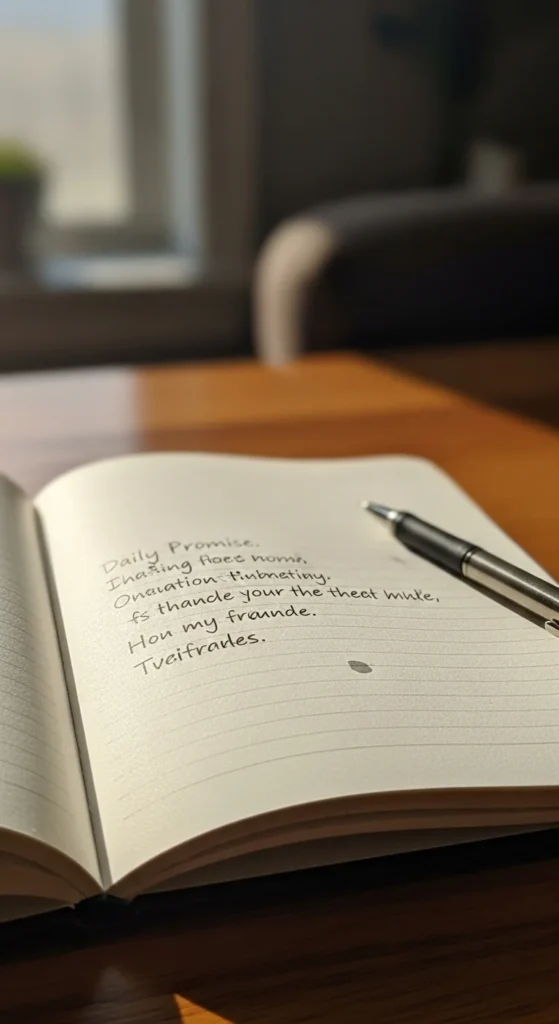 Daily Promise.
Ihasing floes nomn.
Onawation tinbnetiny.
fs thancle your the theat mule,
Hon my fraunde.
Tveifrarles.